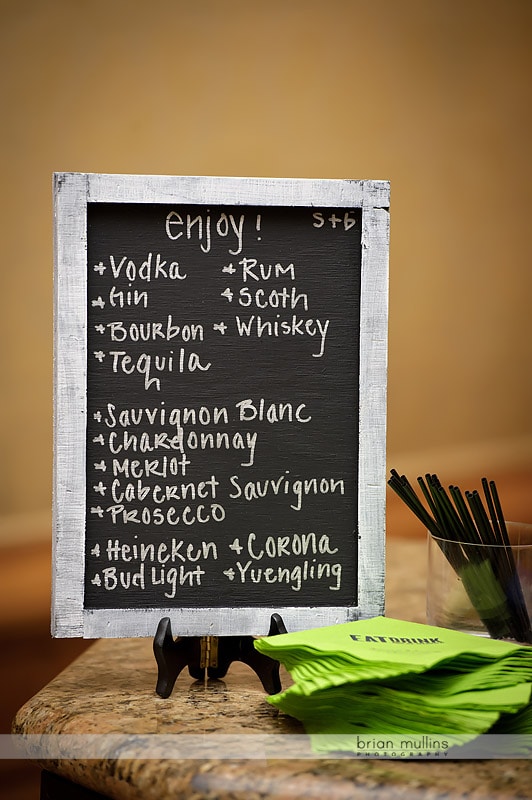 enjoy! S+B
+Vodka +Rum
+Gin +Scoth
+Bourbon +Whiskey
+Tequila
+Sauvignon Blanc
+Chardonnay
+Merlot
+Cabernet Sauvignon
+Prosecco
+Heineken +Corona
+Bud Light +Yuengling
EATDRINK
brian mullins
PHOTOGRAPHY